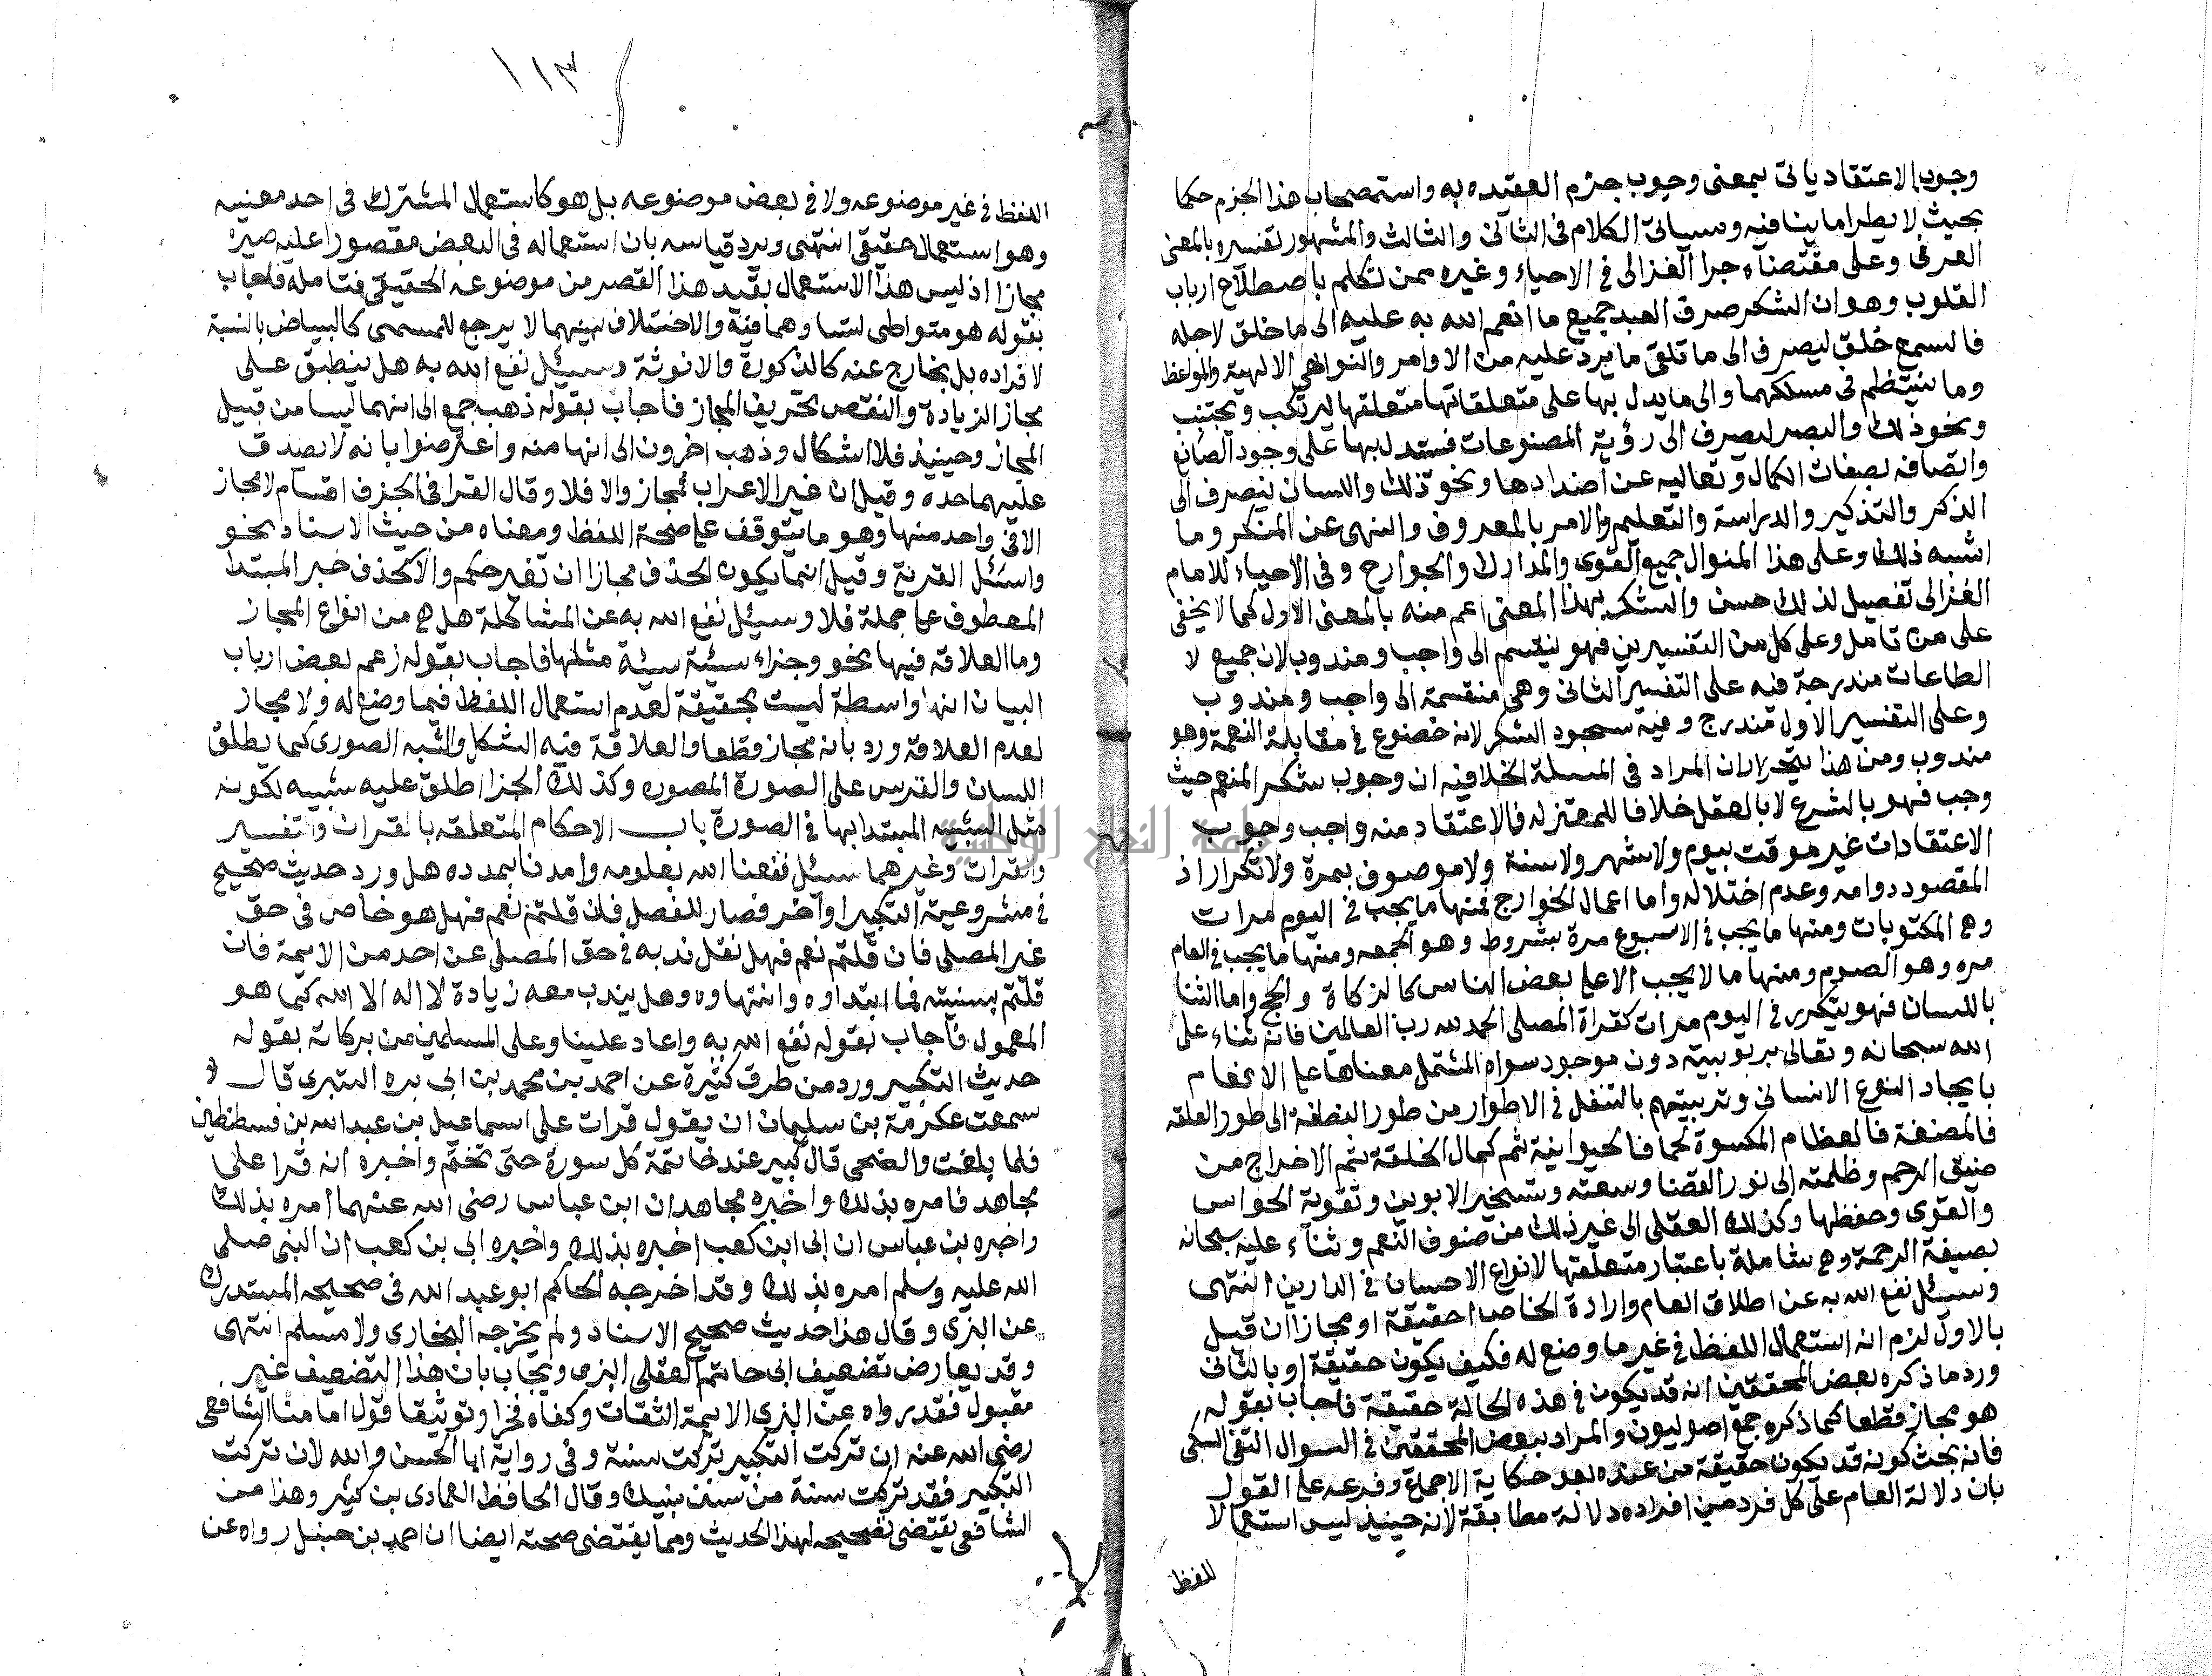 وجوب الاعتقاد ياتى بمعنى وجوب جزم العقيده به واستصحاب هذا الجزم حكما
بحيث لا يطرا ما ينافيه وسياتى الكلام فى الثانى والثالث والمشهور تفسيره بالمعنى
العرفى وعلى مقتضاه جرا الغزالى فى الاحياء وغيره ممن تكلم باصطلاح ارباب
القلوب وهو ان الشكر صرف العبد جميع ما انعم الله به عليه الى ما خلق لاجله
فالسمع خلق ليصرف الى ما تلقى ما يرد عليه من الاوامر والنواهى الالهية والمواعظ
وما ينتظم فى مسلكهما والى ما يدل بها على متعلقاتها متعلقها ليرتكب ويجتنب
ونحو ذلك والبصر ليصرف الى رؤية المصنوعات فستدل بها على وجود الصانع
واتصافه بصفات الكمال وتعاليه عن اضدادها ونحو ذلك واللسان ليصرف الى
الذكر والتذكير والدراسة والتعليم والامر بالمعروف والنهى عن المنكر وما
اشبه ذلك وعلى هذا المنوال جميع القوى والمدارك والجوارح وفى الاحياء للامام
الغزالى تفصيل لذلك حسن والشكر بهذا المعنى اعم منه بالمعنى الاول كما لا يخفى
على من تامل وعلى كل من التفسيرين فهو ينقسم الى واجب ومندوب لان جميع لا
الطاعات مندرجة فيه على التفسير الثانى وهى منقسمة الى واجب ومندوب
وعلى التفسير الاول مندرج وفيه سجود الشكر لانه خضوع فى مقابلة النعمة وهو
مندوب ومن هذا يتحرر ان المراد فى المسلة الخلافيه ان وجوب شكر المنعم حيث
وجب فهو بالشرع لا بالعقل خلافا للمعتزله فالاعتقاد منه واجب وجوب
الاعتقادات غير موقت بيوم ولا شهر ولا سنة ولا موصوف بمرة ولا تكرار اذ
المقصود دوامه وعدم اختلاله واما اعمال الخوارج فمنها ما يجب فى اليوم مرات
وهى المكتوبات ومنها ما يجب فى الاسبوع مرة بشروط وهو الجمعه ومنها ما يجب فى العام
مره وهو الصوم ومنها ما لا يجب الا على بعض الناس كالزكاة والحج واما الثنا
باللسان فهو يتكرر فى اليوم مرات كقراة المصلى الحمد لله رب العالمين فانه ثناء على
الله سبحانه وتعالى بربوبيته دون موجود سواه المشتمل معناها على الانعام
بايجاد النوع الانسانى وتربيتهم بالتنقل فى الاطوار من طور النطفة الى طور العلقه
فالمضغة فالعظام المكسوة لحما فالحيوانية ثم كمال الخلقة ثم الاخراج من
ضيق الرحم وظلمته الى نور الفضا وسعته وتسخير الابوين وتقوية الحواس
والقوى وحفظها وكذلك العقلى الى غير ذلك من صنوف النعم وثناء عليه سبحانه
بصيغة الرحمة وهى شاملة باعتبار متعلقها لانواع الاحسان فى الدارين انتهى
وسئل نفع الله به عن اطلاق العام وارادة الخاص احقيقة او مجاز ان قيل
بالاول لزم انه استعمال اللفظ فى غير ما وضع له فكيف يكون حقيقة او بالثانى
ورد ما ذكره بعض المحققين انه قد يكون فى هذه الحالة حقيقة فاجاب بقوله
هو مجاز قطعا كما ذكره جمع اصوليون والمراد ببعض المحققين فى السوال التقى السبكى
فانه بحث كونه قد يكون حقيقة من عنده بعد حكاية الاجماع وفرعه على القول
بان دلالة العام على كل فرد من افراده دلالة مطابقة لانه حينيذ ليس استعمالا
للفظ
١١٣
اللفظ فى غير موضوعه ولا فى بعض موضوعه بل هو كاستعمال المشترك فى احد معنييه
وهو استعمال حقيقى انتهى ويرد قياسه بان استعماله فى البعض مقصورا عليه صيره
مجازا اذ ليس هذا الاستعمال بقيد هذا القصر من موضوعه الحقيقى فتامله فاجاب
بقوله هو متواطى لتساوهما فيه والاختلاف بينهما لا يرجع للمسمى كالبياض بالنسبة
لافراده بل بخارج عنه كالذكورة والانوثة وسئل نفع الله به هل ينطبق على
مجاز الزيادة والنقص تعريف المجاز فاجاب بقوله ذهب جمع الى انهما ليسا من قبيل
المجاز وحينيذ فلا اشكال وذهب اخرون الى انها منه واعترضوا بانه لا يصدق
عليهما حده وقيل ان غير الاعراب فمجاز والا فلا وقال القرافى الحذف اقسام لا مجاز
الا فى واحد منها وهو ما يتوقف على صحة اللفظ ومعناه من حيث الاسناد نحو
واسئل القرية وقيل انما يكون الحذف مجازا ان تغير حكم والا كحذف خبر المبتدا
المعطوف على جملة فلا وسئل نفع الله به عن المشاكلة هل هى من انواع المجاز
وما العلاقه فيها نحو وجزاء سيئة سيئة مثلها فاجاب بقوله زعم بعض ارباب
البيان انها واسطة ليست بحقيقة لعدم استعمال اللفظ فيما وضع له ولا مجاز
لعدم العلاقه ورد بانه مجاز قطعا والعلاقة فيه الشكل والشبه الصورى كما يطلق
اللسان والفرس على الصورة المصوره وكذلك الجزا اطلق عليه سييه لكونه
مثل السييه المبتدا بها فى الصورة باب الاحكام المتعلقه بالقران والتفسير
والقرات وغيرهما سئل نفعنا الله بعلومه وامدنا بمدده هل ورد حديث صحيح
فى مشروعية التكبير اواخر قصار المفصل فان قلتم نعم فهل هو خاص فى حق
غير المصلى فان قلتم نعم فهل نقل ندبه فى حق المصلى عن احد من الايمة فان
قلتم بسنيته فما ابتداوه وانتهاوه وهل يندب معه زيادة لا اله الا الله كما هو
المعمول فاجاب بقوله نفع الله به واعاد علينا وعلى المسلمين من بركاته بقوله
حديث التكبير ورد من طرق كثيرة عن احمد بن محمد بن ابى بره البترى قال
سمعت عكرمة بن سليمان ان يقول قرات على اسماعيل بن عبد الله بن قسطنطين
فلما بلغت والضحى قال كبر عند خاتمة كل سورة حتى تختم واخبره انه قرا على
مجاهد فامره بذلك واخبره مجاهد ان ابن عباس رضى الله عنهما امره بذلك
واخبره بن عباس ان ابى ابن كعب اخبره بذلك واخبره ابى بن كعب ان النبى صلى
الله عليه وسلم امره بذلك وقد اخرجه الحاكم ابو عبد الله فى صحيحه المستدرك
عن البزى وقال هذا حديث صحيح الاسناد ولم يخرجه البخارى ولا مسلم انتهى
وقد يعارض تضعيف ابى حاتم العقلى البزى ويجاب بان هذا التضعيف غير
مقبول فقد رواه عن البزى الايمة الثقات وكفاه فخرا وتوثيقا قول امامنا الشافعى
رضى الله عنه ان تركت التكبير تركت سنة وفى رواية ابا الحسن والله لان تركت
التكبير فقد تركت سنة من سنن نبيك وقال الحافظ العمادى بن كثير وهذا من
الشافعى يقتضى تصحيحه لهذا الحديث ومما يقتضى صحته ايضا ان احمد بن حنبل رواه عن